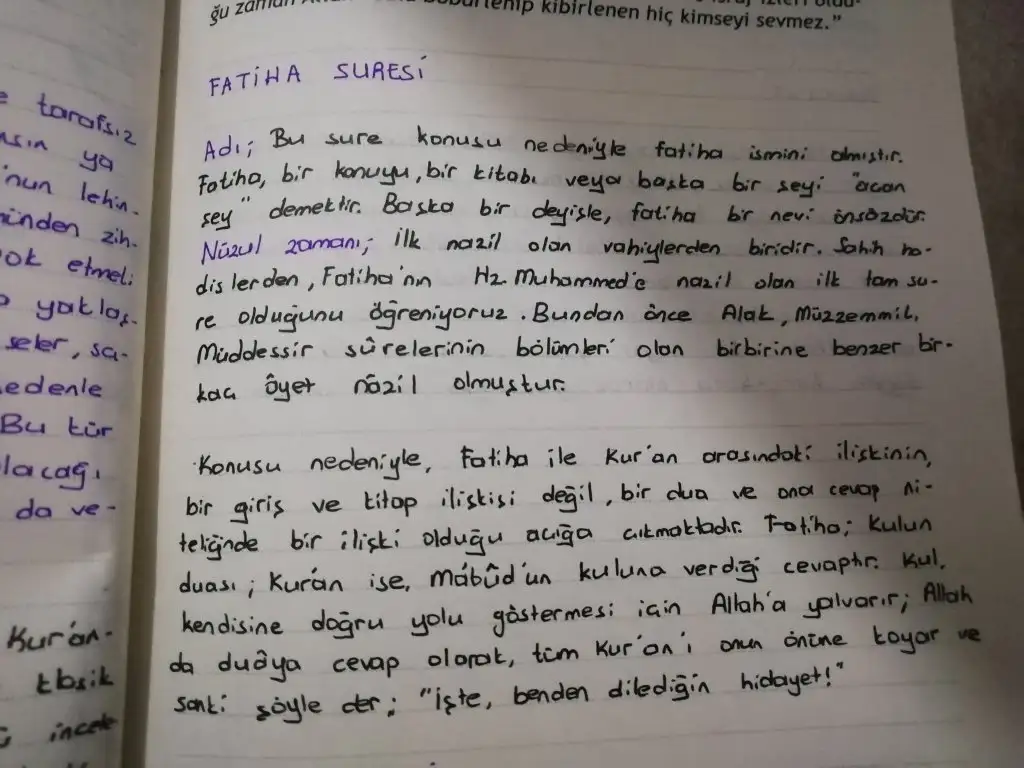 ğu zaman
lenip kibirlenen hiç kimseyi sevmez."
FATİHA SURESİ
Adı; Bu sure konusu nedeniyle fatiha ismini almıştır.
Fatiha, bir konuyu, bir kitabı veya başka bir şeyi "açan
şey" demektir. Başka bir deyişle, fatiha bir nevi önsözdür.
Nüzul zamanı; İlk nazil olan vahiylerden biridir. Sahih ha-
dislerden, Fatiha'nın Hz. Muhammed'e nazil olan ilk tam su-
re olduğunu öğreniyoruz. Bundan önce Alak, Müzzemmil,
Müddessir sûrelerinin bölümleri olan birbirine benzer bir-
kaç âyet nâzil olmuştur.
Konusu nedeniyle, Fatiha ile Kur'an arasındaki ilişkinin,
bir giriş ve kitap ilişkisi değil, bir dua ve ona cevap ni-
teliğinde bir ilişki olduğu açığa çıkmaktadır. Fatiha; kulun
duası; Kur'an ise, Mâbûd'un kuluna verdiği cevaptır. Kul,
kendisine doğru yolu göstermesi için Allah'a yalvarır; Allah
da duâya cevap olarak, tüm Kur'an'ı onun önüne koyar ve
sanki şöyle der; "İşte, benden dilediğin hidayet!"
tarafsız
ya
'nun lehin-
zih-
etmeli
yaklaş-
seler, sa-
edenle
Bu tür
lacağı
da ve-
Kur'an-
klasik
incele